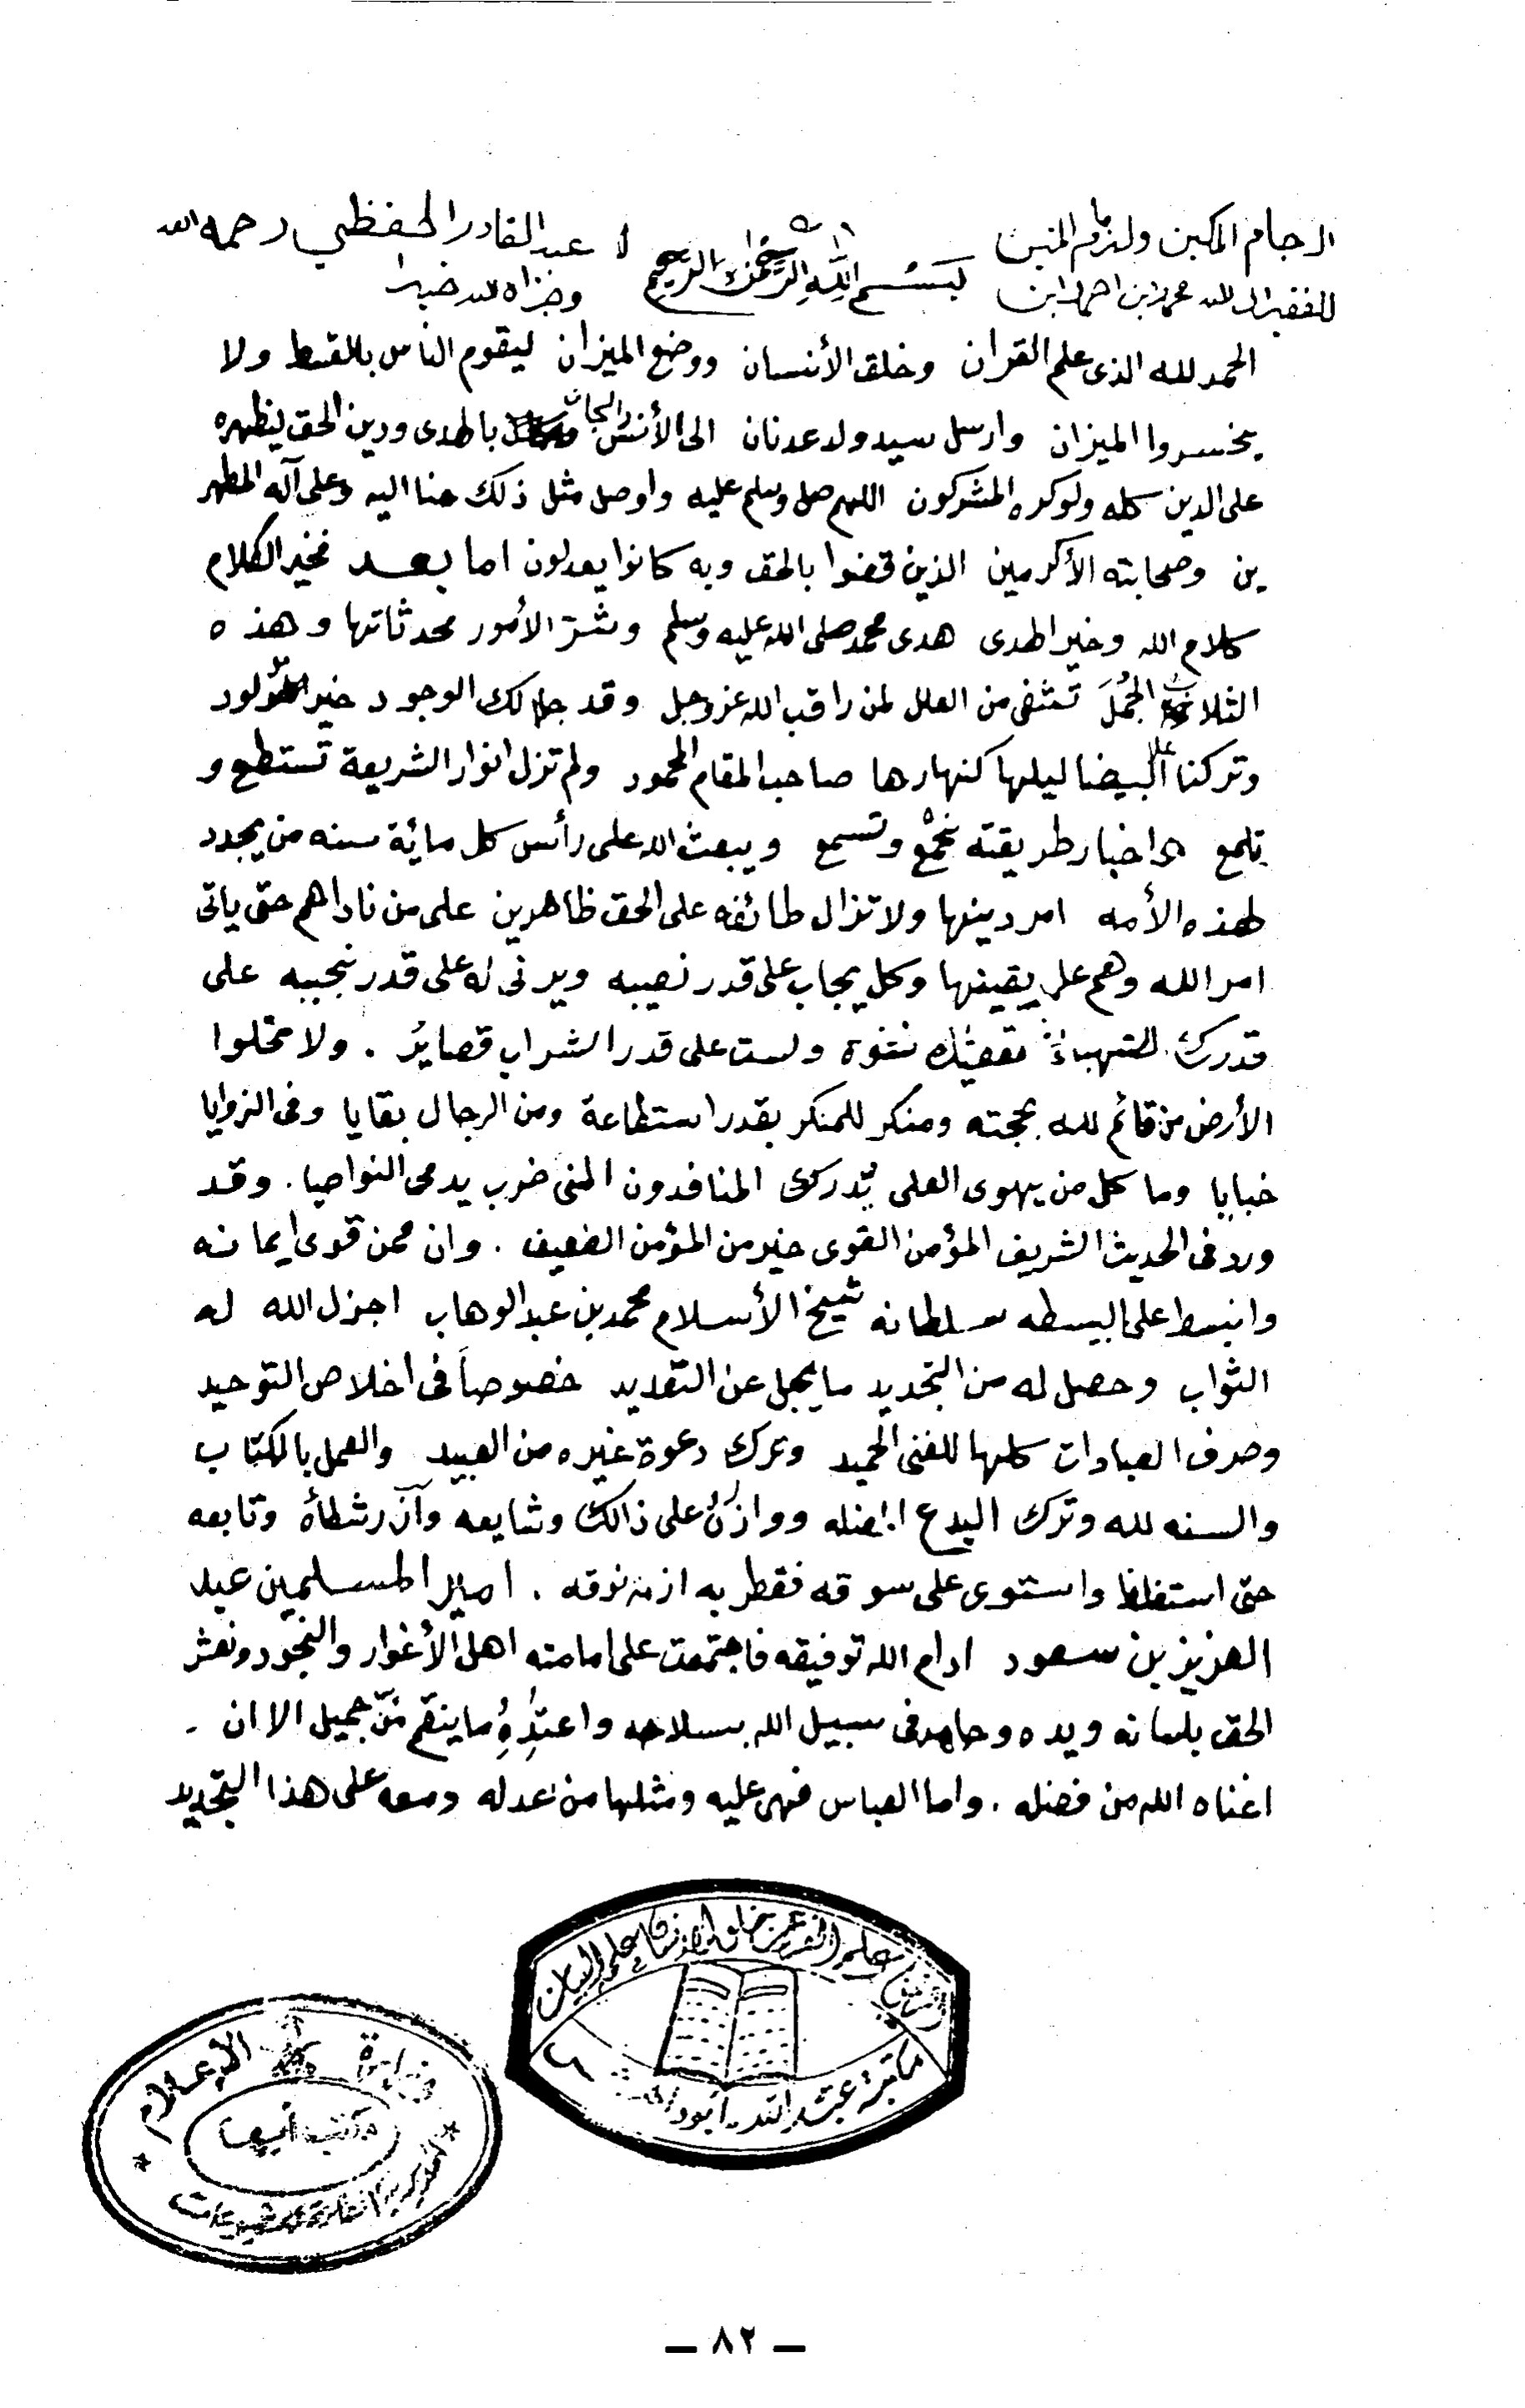 الرجام المكين ولزام المتين
للفقير الى الله محمد ابن احمد ابن
بسم الله الرحمن الرحيم
عبد القادر الحفظي رحمه الله
وجزاه الله خيرا
الحمد لله الذى علم القران وخلق الأنسان ووضع الميزان ليقوم الناس بالقسط ولا
يخسروا الميزان وارسل سيد ولد عدنان الى الأنس والجان بالهدى ودين الحق ليظهره
على الدين كله ولو كره المشركون اللهم صل وسلم عليه واوصل مثل ذلك منا اليه وعلى آله المطهر
ين وصحابته الأكرمين الذين قضوا بالحق وبه كانوا يعدلون اما بعد فخير الكلام
كلام الله وخير الهدى هدى محمد صلى الله عليه وسلم وشرّ الأمور محدثاتها وهذه
الثلاث الجُمَل تشفى من العلل لمن راقب الله عز وجل وقد جا لك الوجود خير مولود
وتركنا على البيضا ليلها كنهارها صاحب المقام المحمود ولم تزل انوار الشريعة تستطع و
تلمع واخبار طريقته تجمع وتسمع ويبعث الله على رأس كل مائة سنه من يجدد
لهذه الأمه امر دينها ولا تزال طائفه على الحق ظاهرين على من ناداهم حتى ياتى
امر الله وهم على يقينها وكل يجاب على قدر نصيبه ويدنى له على قدر نجيبه على
قدرك الصهباء تعطيك نشوة ولست على قدر الشراب قصايرُ . ولا تخلوا
الأرض من قائم لله بحجته ومنكر للمنكر بقدر استطاعة ومن الرجال بقايا وفى الزوايا
خبايا وما كل من يهوى العلى تدرك المنافدون المنى ضرب يدمى النواصيا . وقد
ورد فى الحديث الشريف المؤمن القوى خير من المؤمن الضعيف . وان ممن قوى ايمانه
وانبسط على البسيطه سلطانه شيخ الأسلام محمد بن عبد الوهاب اجزل الله له
الثواب وحصل له من التجديد ما يجل عن التعديد خصوصاً فى اخلاص التوحيد
وصرف العبادات كلها للغنى الحميد وترك دعوة غيره من العبيد والعمل بالكتاب
والسنه لله وترك البدع المضله ووازرهُ على ذالك وشايعه وآزر شطأهُ وتابعه
حتى استغلظ واستوى على سوقه فقطر به ازمه نوقه . امير المسلمين عبد
العزيز بن سعود ادام الله توفيقه فاجتمعت على امامته اهل الأغوار والنجود ونعش
الحق بلسانه ويده وجاهد فى سبيل الله بسلاحه واعتدهِ ما ينقم منّ جميل الا ان
اغناه الله من فضله . واما العباس فهى عليه ومثلها من عدله ومعه على هذا التجديد
علم القرءان خلق الإنسان علمه البيان
مكتبة عبد الله أبوداهش
وزارة الإعلام
مكتب أبها
– ٨٢ –